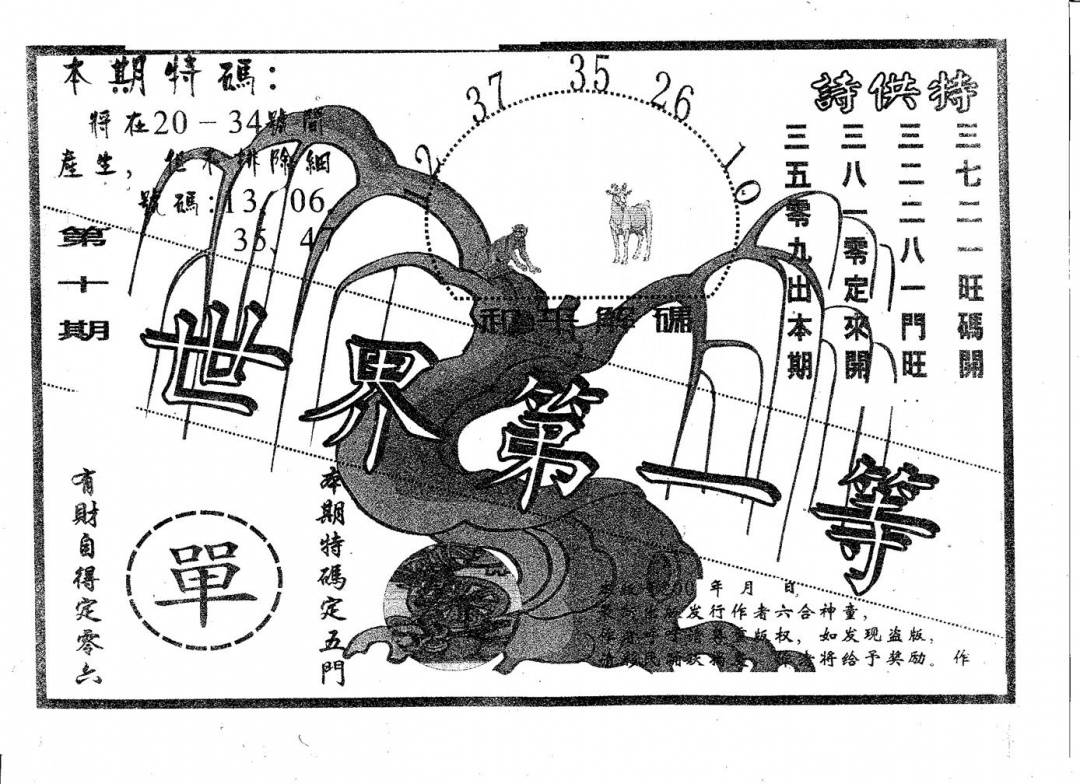 本期特碼：
將在20－34號間
產生，但不排除細
號碼：13、06、
35、47
第十期
12
37
35
26
10
解碼
特供詩
三七二一旺碼開
三二二八一門旺
三八一零定來開
三五零九出本期
世界第一等
有財自得定零六
單
本期特碼定五門
年 月 日
发行作者六合神童，
版权，如发现盗版，
将给予奖励。作